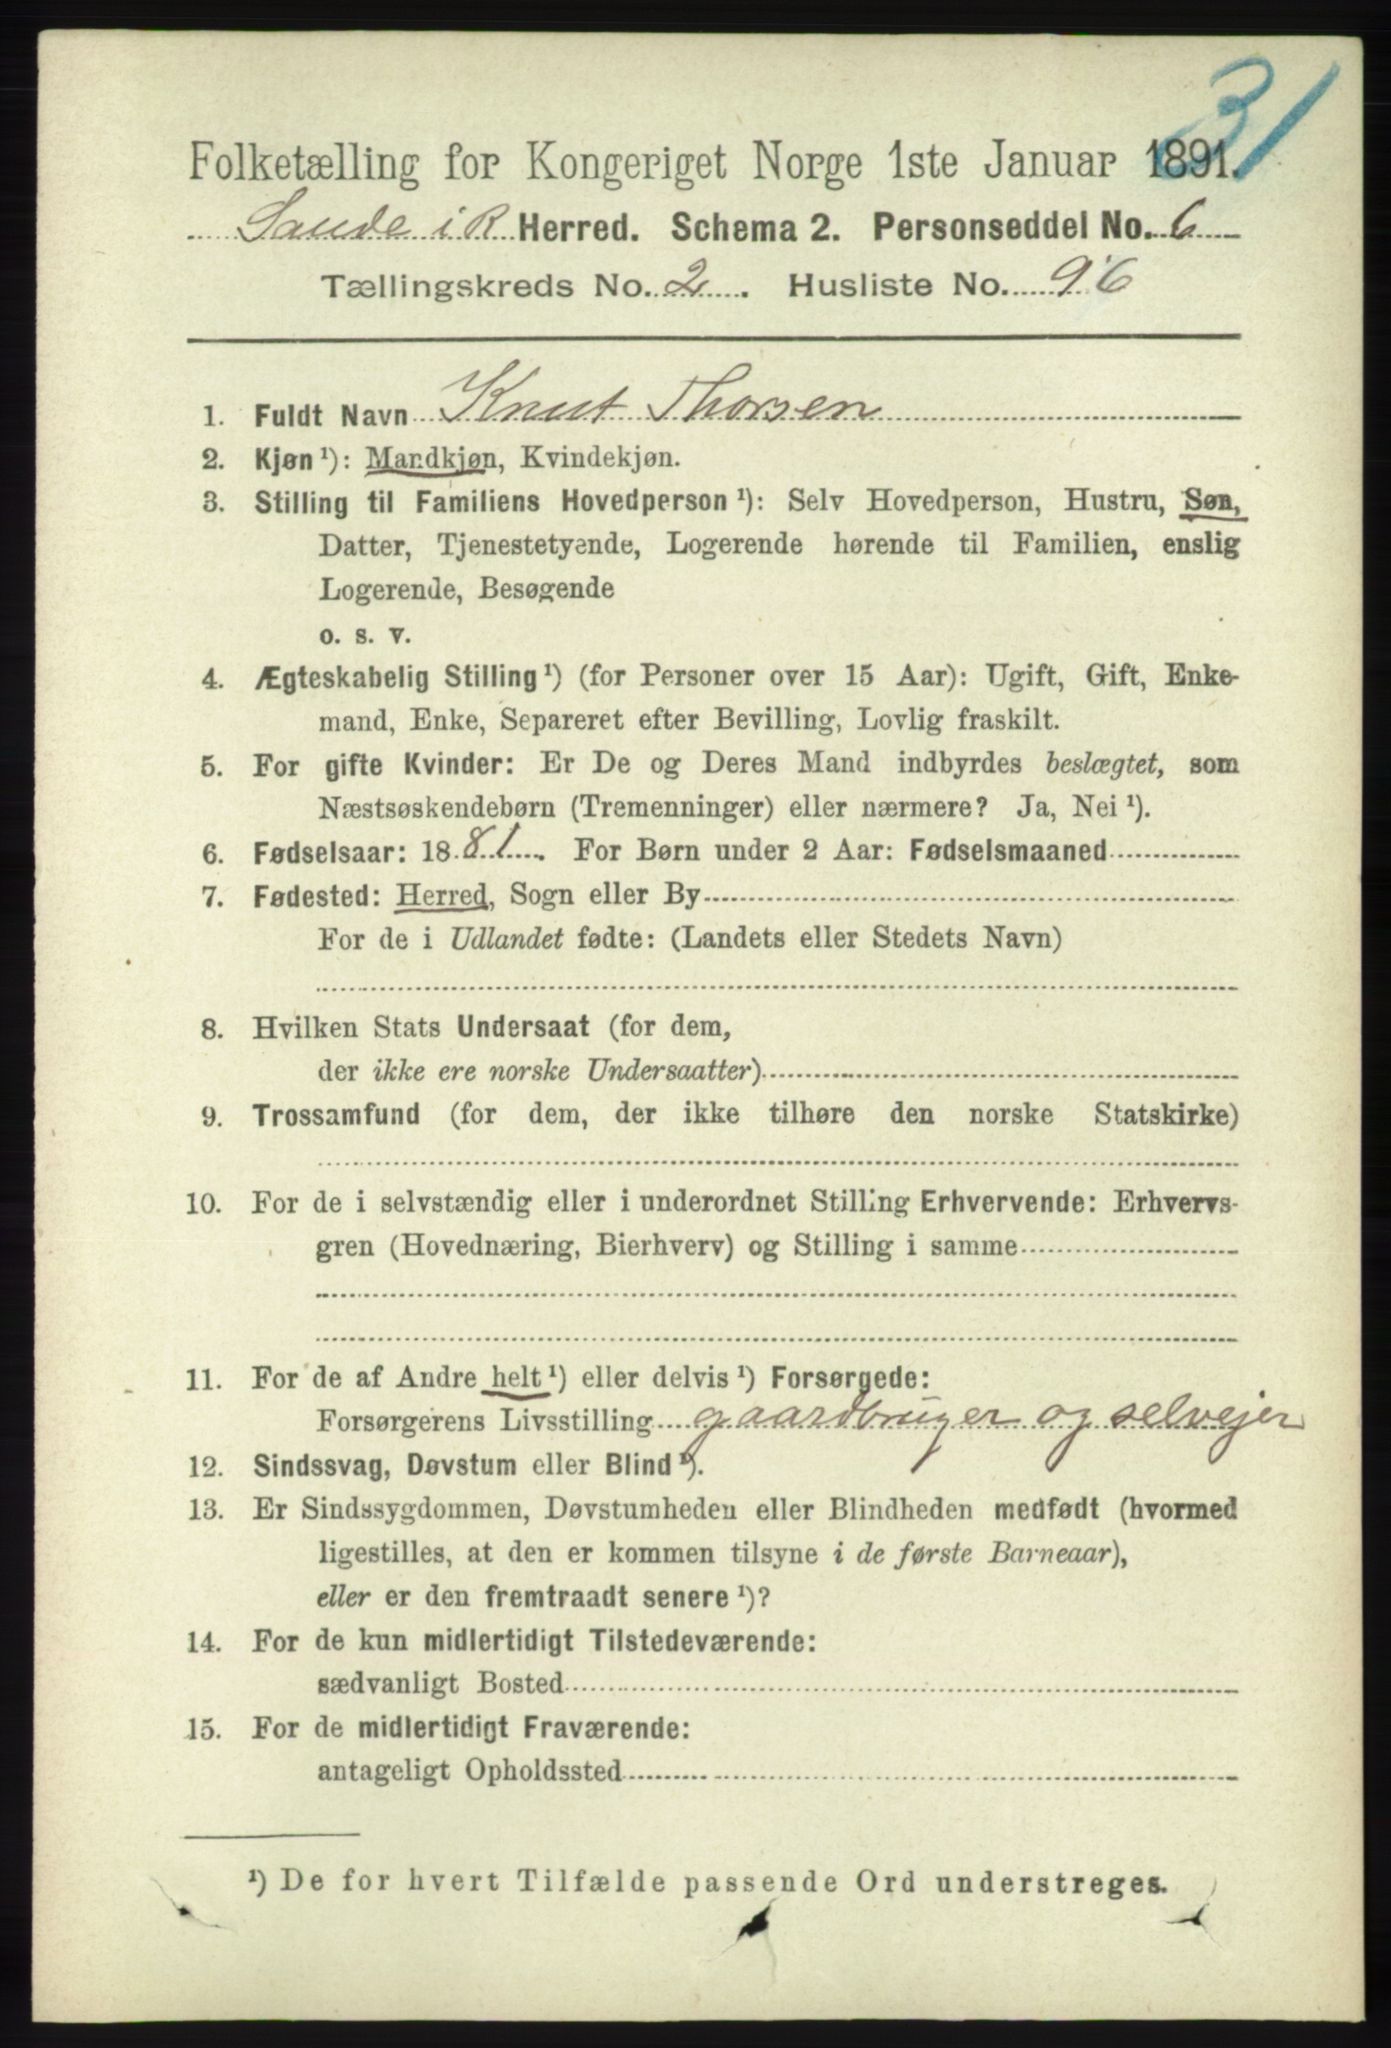 31
Folketælling for Kongeriget Norge 1ste Januar 1891.
Saude i R Herred. Schema 2. Personseddel No. 6
Tællingskreds No. 2. Husliste No. 96
1. Fuldt Navn Knut Thorsen
2. Kjøn ¹): Mandkjøn, Kvindekjøn.
3. Stilling til Familiens Hovedperson ¹): Selv Hovedperson, Hustru, Søn,
Datter, Tjenestetyende, Logerende hørende til Familien, enslig
Logerende, Besøgende
o. s. v.
4. Ægteskabelig Stilling ¹) (for Personer over 15 Aar): Ugift, Gift, Enke-
mand, Enke, Separeret efter Bevilling, Lovlig fraskilt.
5. For gifte Kvinder: Er De og Deres Mand indbyrdes beslægtet, som
Næstsøskendebørn (Tremenninger) eller nærmere? Ja, Nei ¹).
6. Fødselsaar: 1881. For Børn under 2 Aar: Fødselsmaaned
7. Fødested: Herred, Sogn eller By
For de i Udlandet fødte: (Landets eller Stedets Navn)
8. Hvilken Stats Undersaat (for dem,
der ikke ere norske Undersaatter)
9. Trossamfund (for dem, der ikke tilhøre den norske Statskirke)
10. For de i selvstændig eller i underordnet Stilling Erhvervende: Erhvervs-
gren (Hovednæring, Bierhverv) og Stilling i samme
11. For de af Andre helt ¹) eller delvis ¹) Forsørgede:
Forsørgerens Livsstilling gaardbruger og selvejer
12. Sindssvag, Døvstum eller Blind ¹).
13. Er Sindssygdommen, Døvstumheden eller Blindheden medfødt (hvormed
ligestilles, at den er kommen tilsyne i de første Barneaar),
eller er den fremtraadt senere ¹)?
14. For de kun midlertidigt Tilstedeværende:
sædvanligt Bosted
15. For de midlertidigt Fraværende:
antageligt Opholdssted
¹) De for hvert Tilfælde passende Ord understreges.